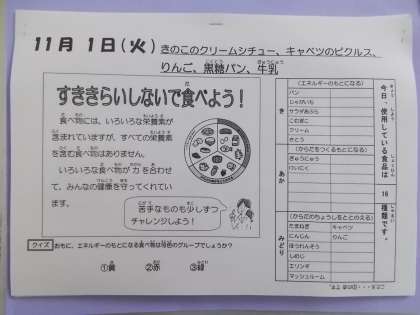 11月 1日(火) きのこのクリームシチュー、キャベツのピクルス、
りんご、黒糖パン、牛乳
すききらいしないで食べよう!
食べ物には、いろいろな栄養素が
含まれていますが、すべての栄養素
を含む食べ物はありません。
いろいろな食べ物が力を合わせ
て、みんなの健康を守ってくれてい
ます。
苦手なものも少しずつ
チャレンジしよう!
クイズ おもに、エネルギーのもとになる食べ物は何色のグループでしょうか?
①黄 ②赤 ③緑
今日、使用している食品は 16 種類です。
き
(エネルギーのもとになる)
パン
じゃがいも
サラダあぶら
こむぎこ
クリーム
さとう
あか
(からだをつくるもとになる)
ぎゅうにゅう
けいにく
みどり
(からだのちょうしをととのえる)
たまねぎ キャベツ
にんじん りんご
ほうれんそう
しめじ
エリンギ
マッシュルーム